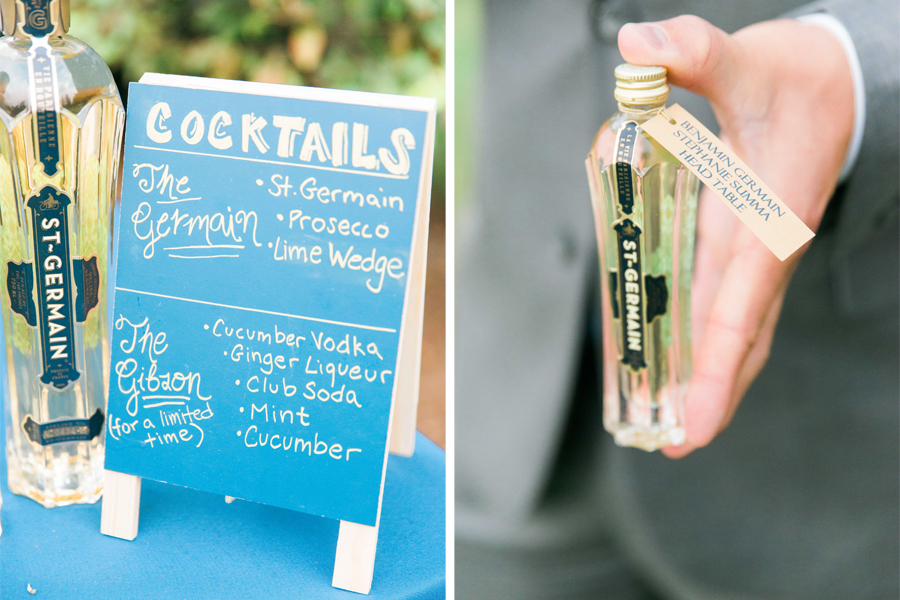 ST~GERMAIN
COCKTAILS
The
Germain
• St. Germain
• Prosecco
• Lime Wedge
The
Gibson
(for a limited
time)
• Cucumber Vodka
• Ginger Liqueur
• Club Soda
• Mint
• Cucumber
BENJAMIN GERMAIN
STEPHANIE SUMMA
HEAD TABLE
ST~GERMAIN